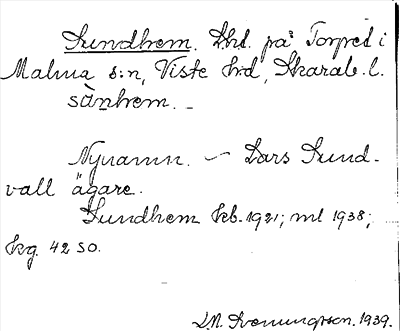 Sundhem. Lhl. på Torpet i
Malma s:n, Viste hrd, Skarab. l.
sànhem. –
Nynamn. – Lars Sund-
vall ägare.
Sundhem kb. 1921; ml 1938;
kg. 42 SO.
1939.